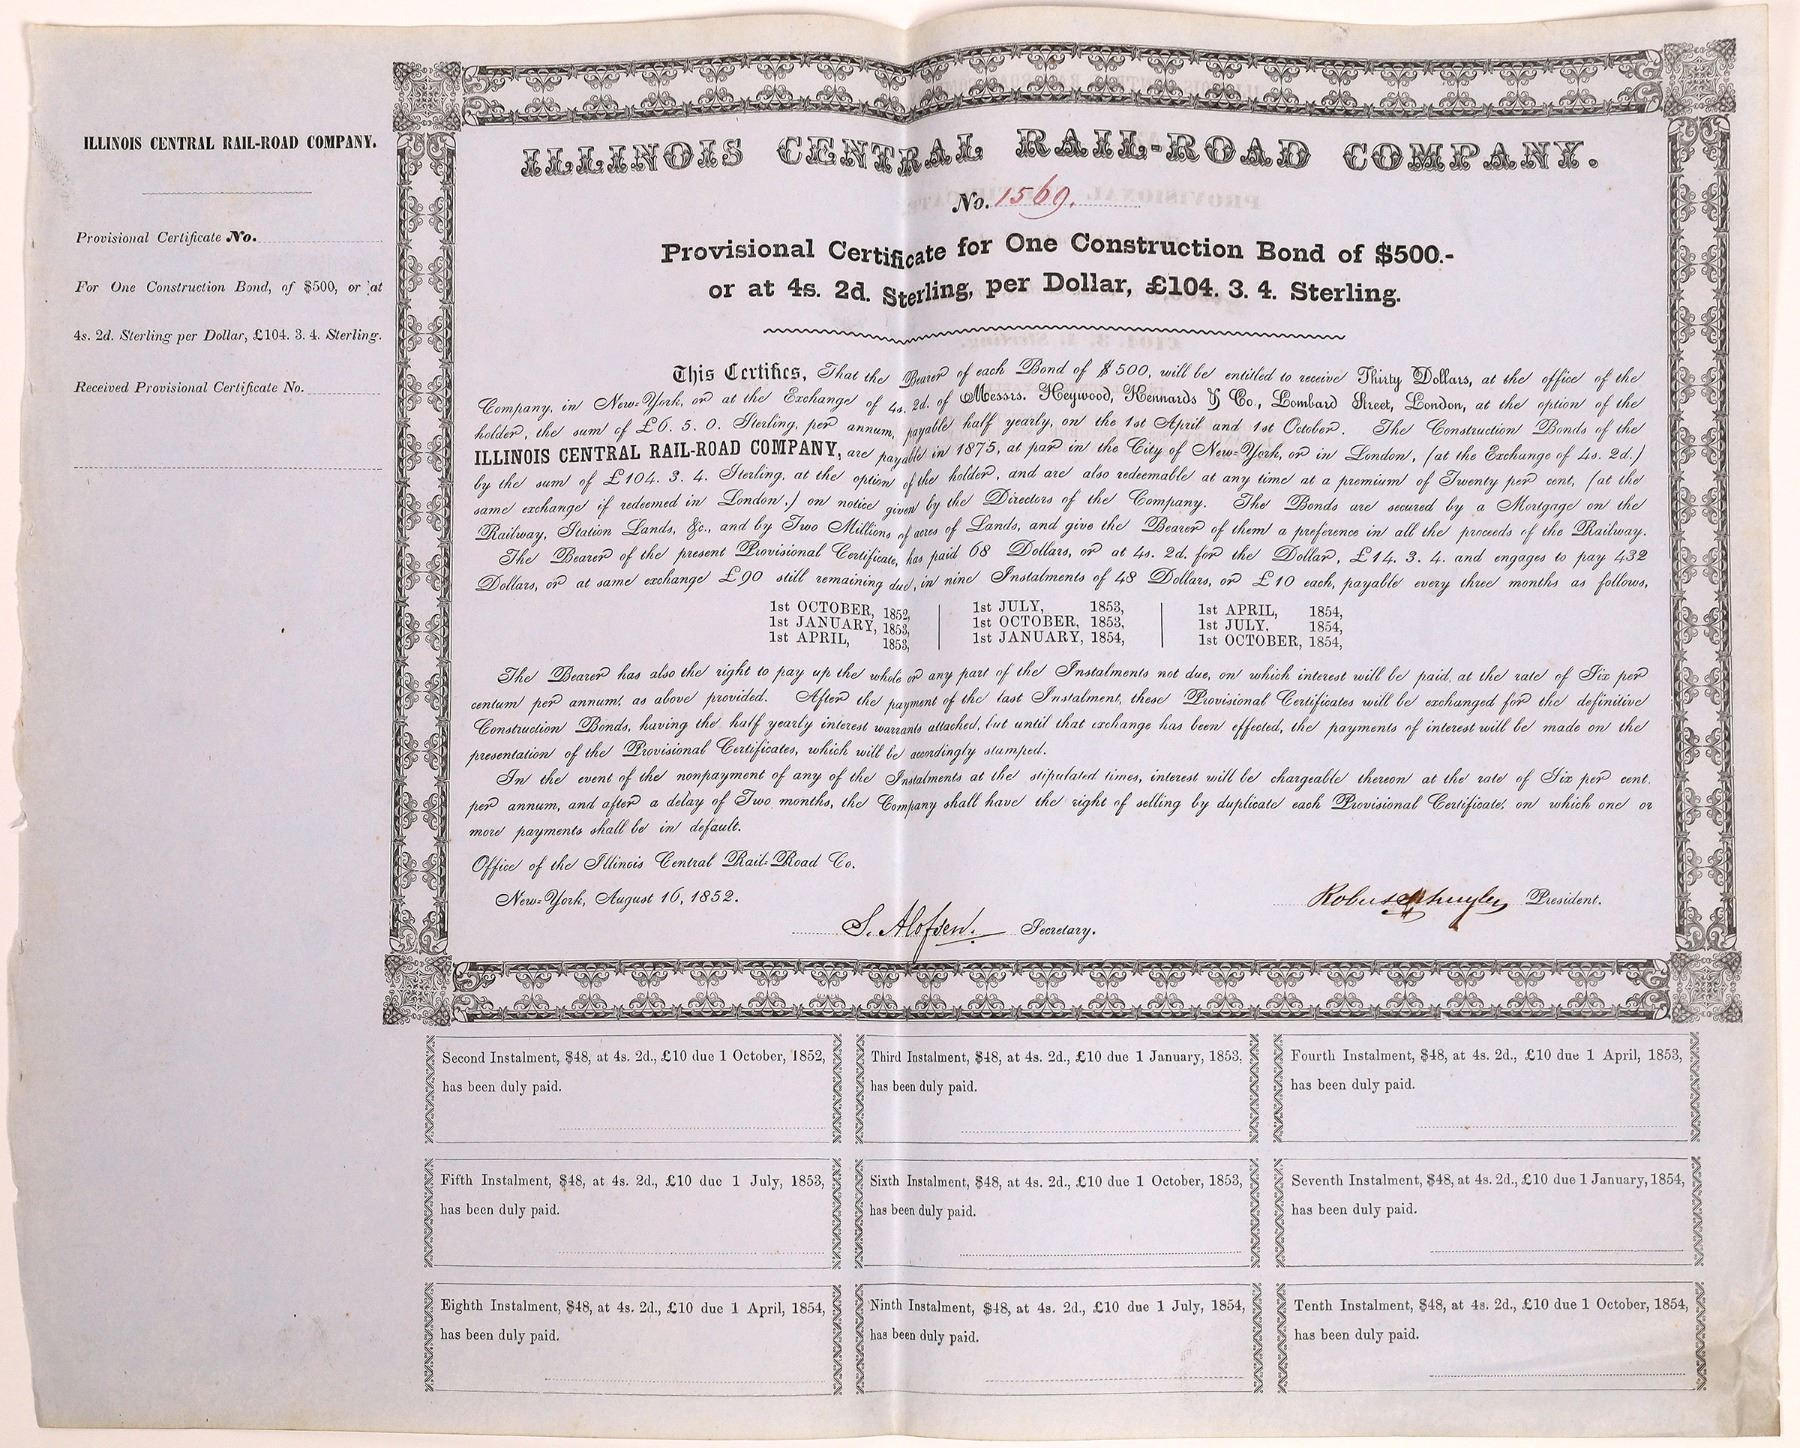 ILLINOIS CENTRAL RAIL-ROAD COMPANY.
Provisional Certificate No.
For One Construction Bond, of $500, or at
4s. 2d. Sterling per Dollar, £104. 3. 4. Sterling.
Received Provisional Certificate No.
ILLINOIS CENTRAL RAIL-ROAD COMPANY.
No. 1569.
Provisional Certificate for One Construction Bond of $500.-
or at 4s. 2d. Sterling, per Dollar, £104. 3. 4. Sterling.
This Certifies, That the Bearer of each Bond of $500, will be entitled to receive Thirty Dollars, at the office of the
Company, in New-York, or at the Exchange of 4s. 2d. of Messrs. Heywood, Kennards & Co., Lombard Street, London, at the option of the
holder, the sum of £6. 5. 0. Sterling, per annum, payable half yearly, on the 1st April and 1st October. The Construction Bonds of the
ILLINOIS CENTRAL RAIL-ROAD COMPANY, are payable in 1875, at par in the City of New-York, or in London, (at the Exchange of 4s. 2d.)
by the sum of £104. 3. 4. Sterling, at the option of the holder, and are also redeemable at any time at a premium of Twenty per cent, (at the
same exchange if redeemed in London,) on notice given by the Directors of the Company. The Bonds are secured by a Mortgage on the
Railway, Station Lands, &c., and by Two Millions of acres of Lands, and give the Bearer of them a preference in all the proceeds of the Railway.
The Bearer of the present Provisional Certificate, has paid 68 Dollars, or at 4s. 2d. for the Dollar, £14. 3. 4. and engages to pay 432
Dollars, or at same exchange £90 still remaining due, in nine Instalments of 48 Dollars, or £10 each, payable every three months as follows,
1st OCTOBER, 1852, 1st JULY, 1853, 1st APRIL, 1854,
1st JANUARY, 1853, 1st OCTOBER, 1853, 1st JULY, 1854,
1st APRIL, 1853, 1st JANUARY, 1854, 1st OCTOBER, 1854,
The Bearer has also the right to pay up the whole or any part of the Instalments not due, on which interest will be paid, at the rate of Six per
centum per annum, as above provided. After the payment of the last Instalment, these Provisional Certificates will be exchanged for the definitive
Construction Bonds, having the half yearly interest warrants attached, but until that exchange has been effected, the payments of interest will be made on the
presentation of the Provisional Certificates, which will be accordingly stamped.
In the event of the nonpayment of any of the Instalments at the stipulated times, interest will be chargeable thereon at the rate of Six per cent.
per annum, and after a delay of Two months, the Company shall have the right of selling by duplicate each Provisional Certificate, on which one or
more payments shall be in default.
Office of the Illinois Central Rail-Road Co.
New-York, August 16, 1852.
Robert Schuyler President.
S. Alofsen. Secretary.
Second Instalment, $48, at 4s. 2d., £10 due 1 October, 1852,
has been duly paid.
Third Instalment, $48, at 4s. 2d., £10 due 1 January, 1853,
has been duly paid.
Fourth Instalment, $48, at 4s. 2d., £10 due 1 April, 1853,
has been duly paid.
Fifth Instalment, $48, at 4s. 2d., £10 due 1 July, 1853,
has been duly paid.
Sixth Instalment, $48, at 4s. 2d., £10 due 1 October, 1853,
has been duly paid.
Seventh Instalment, $48, at 4s. 2d., £10 due 1 January, 1854,
has been duly paid.
Eighth Instalment, $48, at 4s. 2d., £10 due 1 April, 1854,
has been duly paid.
Ninth Instalment, $48, at 4s. 2d., £10 due 1 July, 1854,
has been duly paid.
Tenth Instalment, $48, at 4s. 2d., £10 due 1 October, 1854,
has been duly paid.